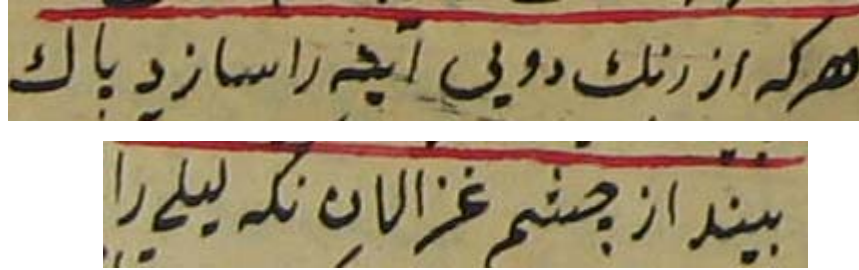 هرکه از رنك دویی آینه را سازد پاك
بیند از چشم غزالان نکه لیلی را